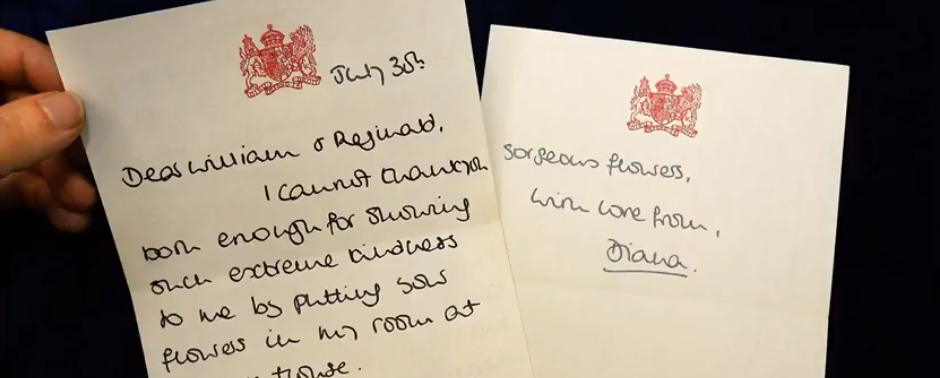 July 30th
Dear William & Reginald,
I cannot thank you
both enough for showing
such extreme kindness
to me by putting
flowers in my room at
House.
gorgeous flowers,
with love from,
Diana.